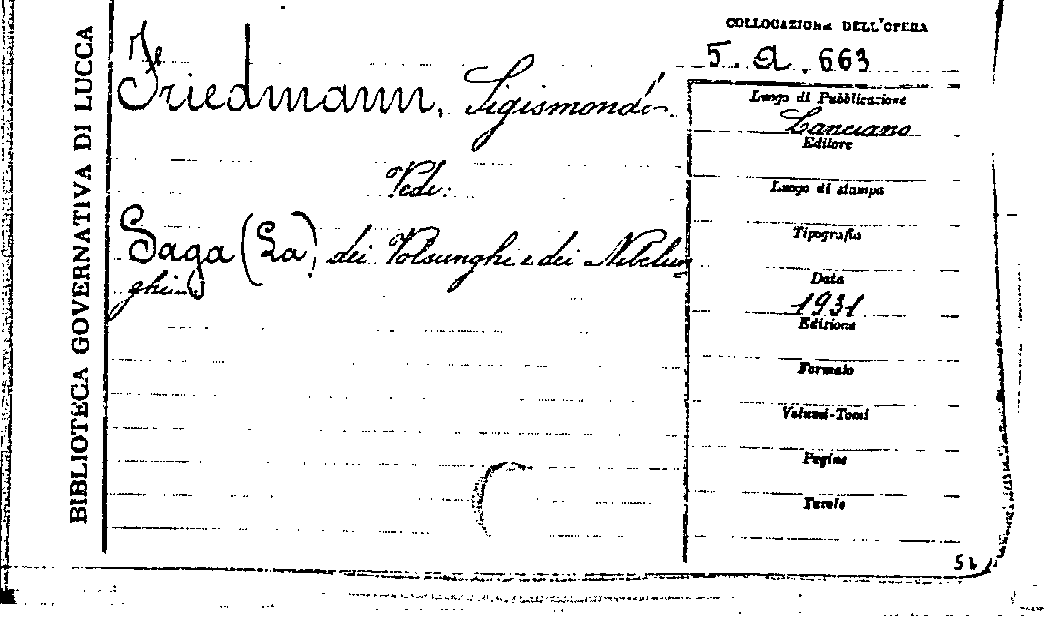 BIBLIOTECA GOVERNATIVA DI LUCCA
Friedmann, Sigismondo
Vedi:
Saga (La) dei Volsunghi e dei Nibelun
ghi
COLLOCAZIONE DELL'OPERA
5. a. 663
Luogo di Pubblicazione
Lanciano
Editore
Luogo di stampa
Tipografia
Data
1931
Edizione
Formato
Volumi-Tomi
Pagine
Tavole